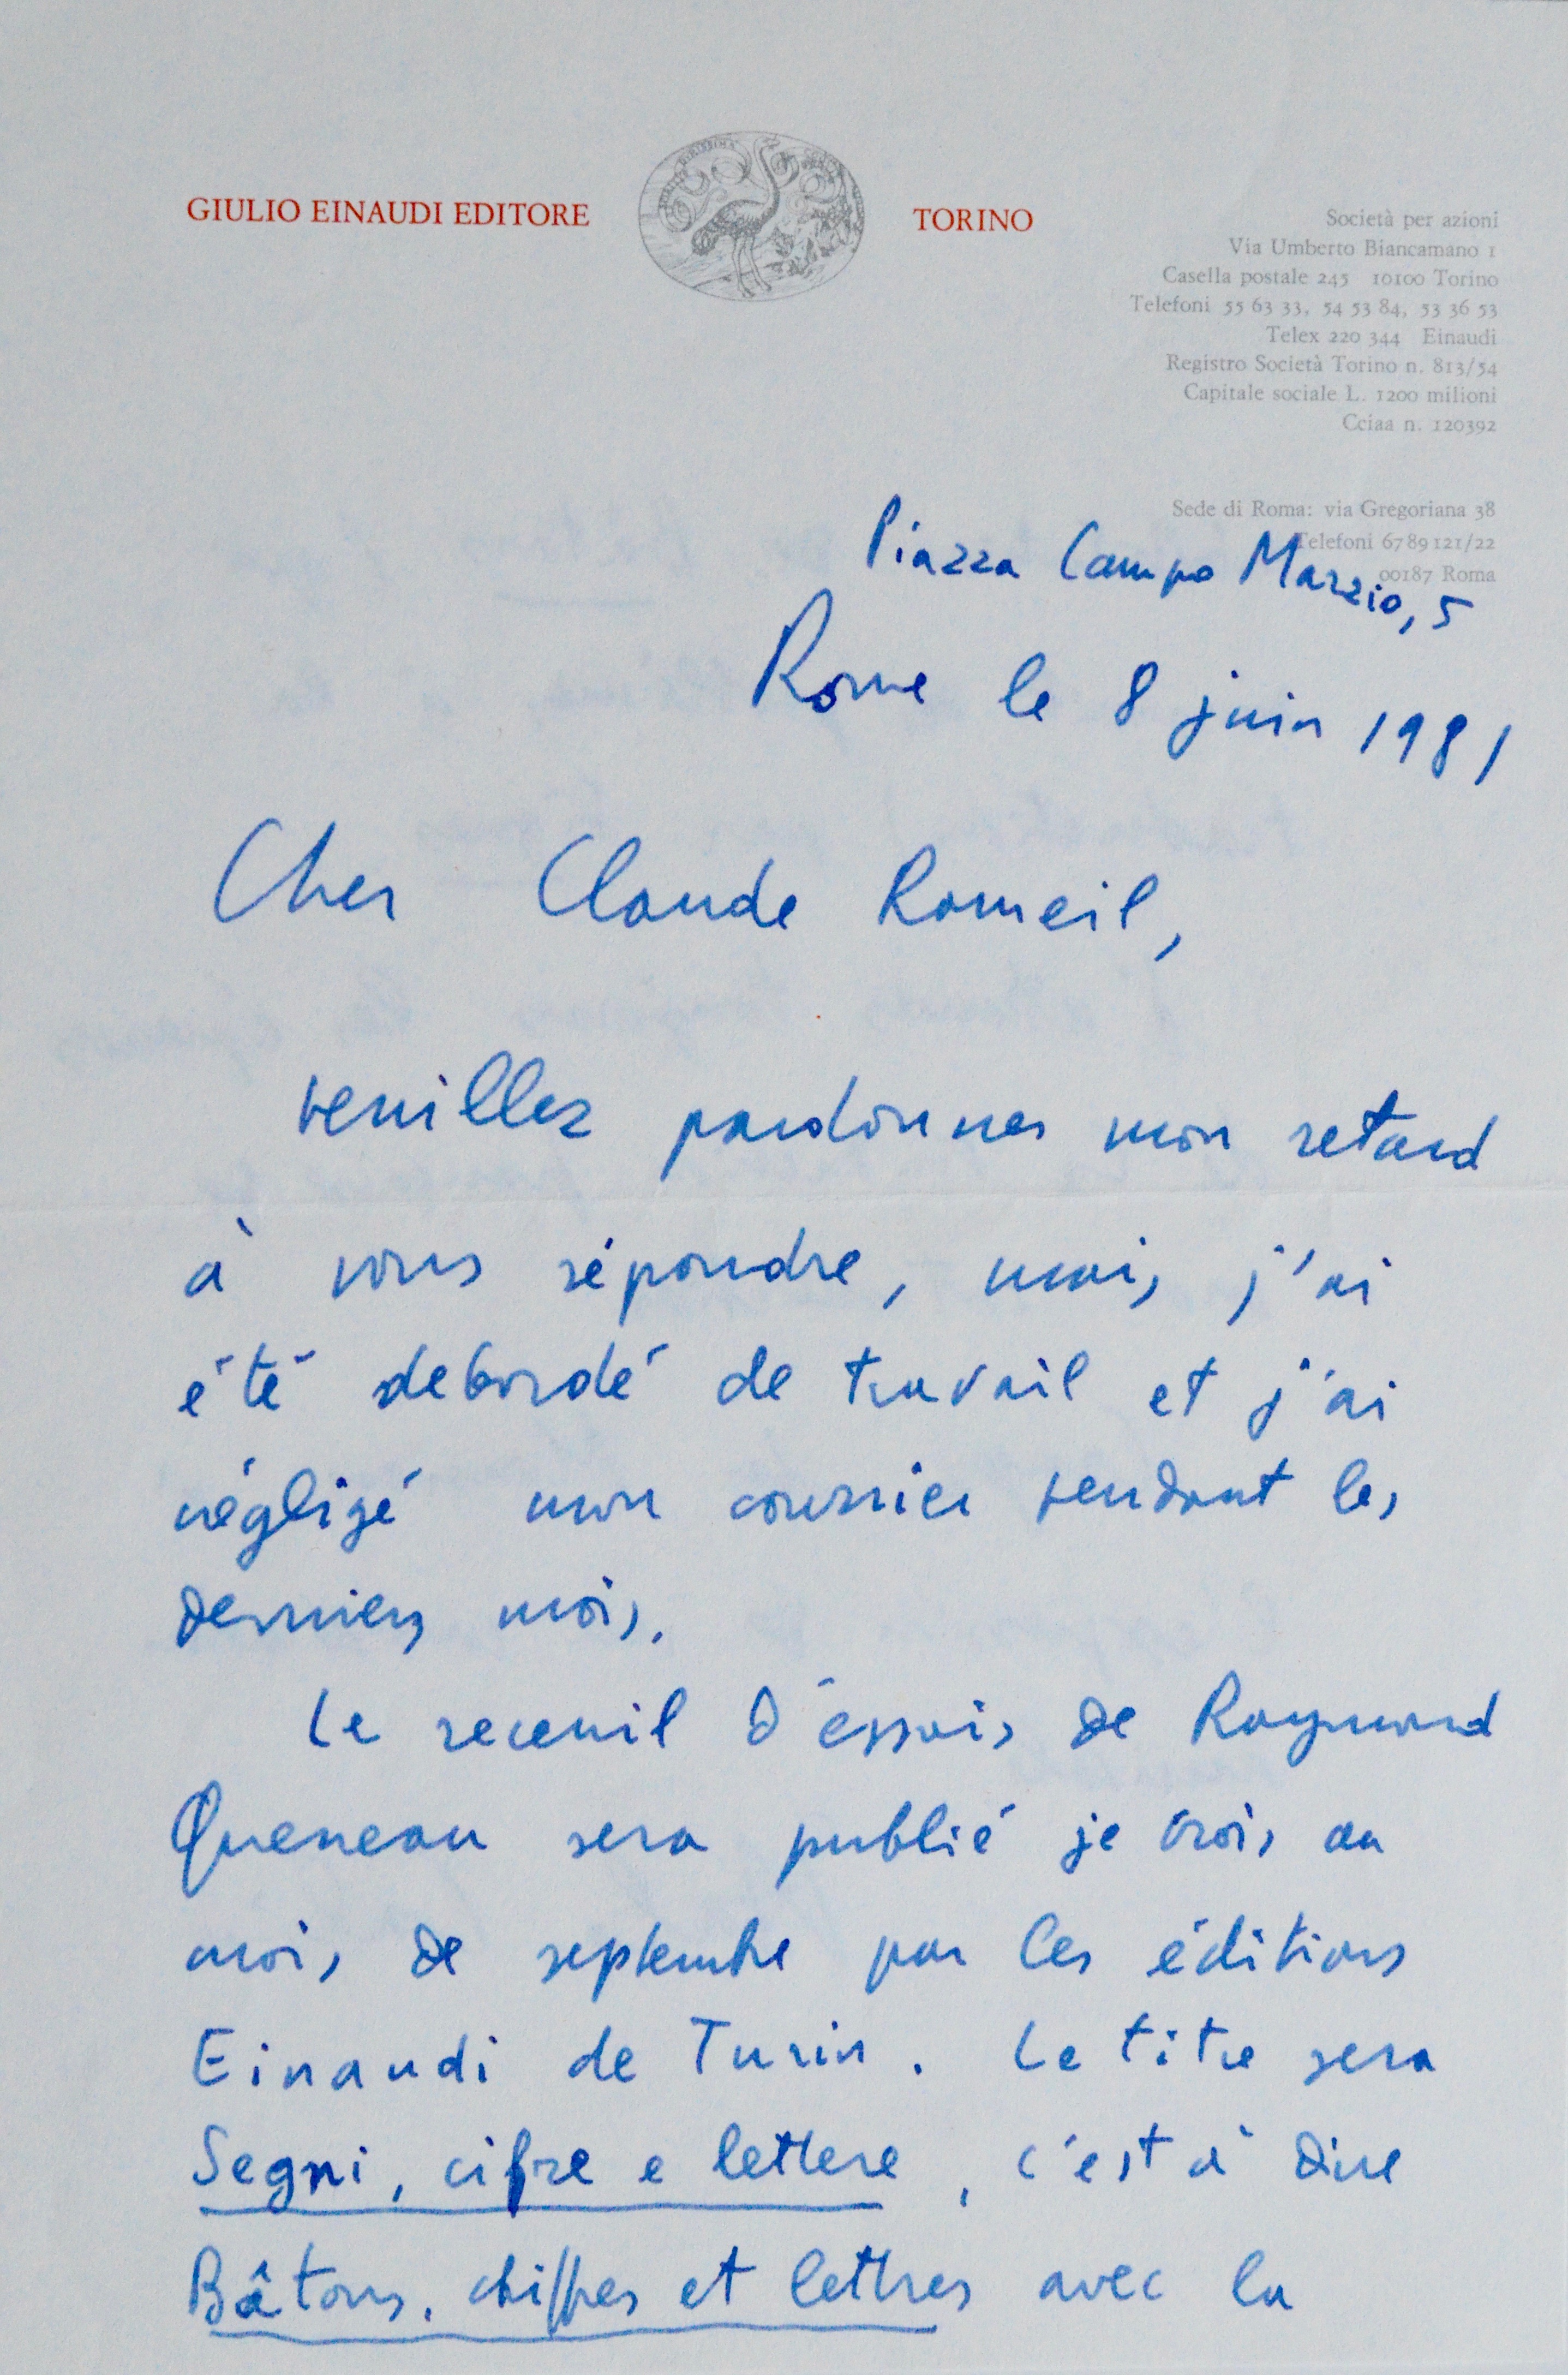 GIULIO EINAUDI EDITORE
TORINO
Società per azioni
Via Umberto Biancamano 1
Casella postale 245 10100 Torino
Telefoni 55 63 33, 54 53 84, 53 36 53
Telex 220 344 Einaudi
Registro Società Torino n. 813/54
Capitale sociale L. 1200 milioni
Cciaa n. 120392
Sede di Roma: via Gregoriana 38
Telefoni 6789121/22
00187 Roma
Piazza Campo Marzio, 5
Rome le 8 juin 1981
Cher Claude Rameil,
veuillez pardonner mon retard
à vous répondre, mais j'ai
été debordé de travail et j'ai
négligé mon courrier pendant les
derniers mois.
Le receuil d'essais de Raymond
Queneau sera publié je crois au
mois de septembre par les éditions
Einaudi de Turin. Le titre sera
Segni, cifre e lettere, c'est à dire
Bâtons, chiffres et lettres avec la